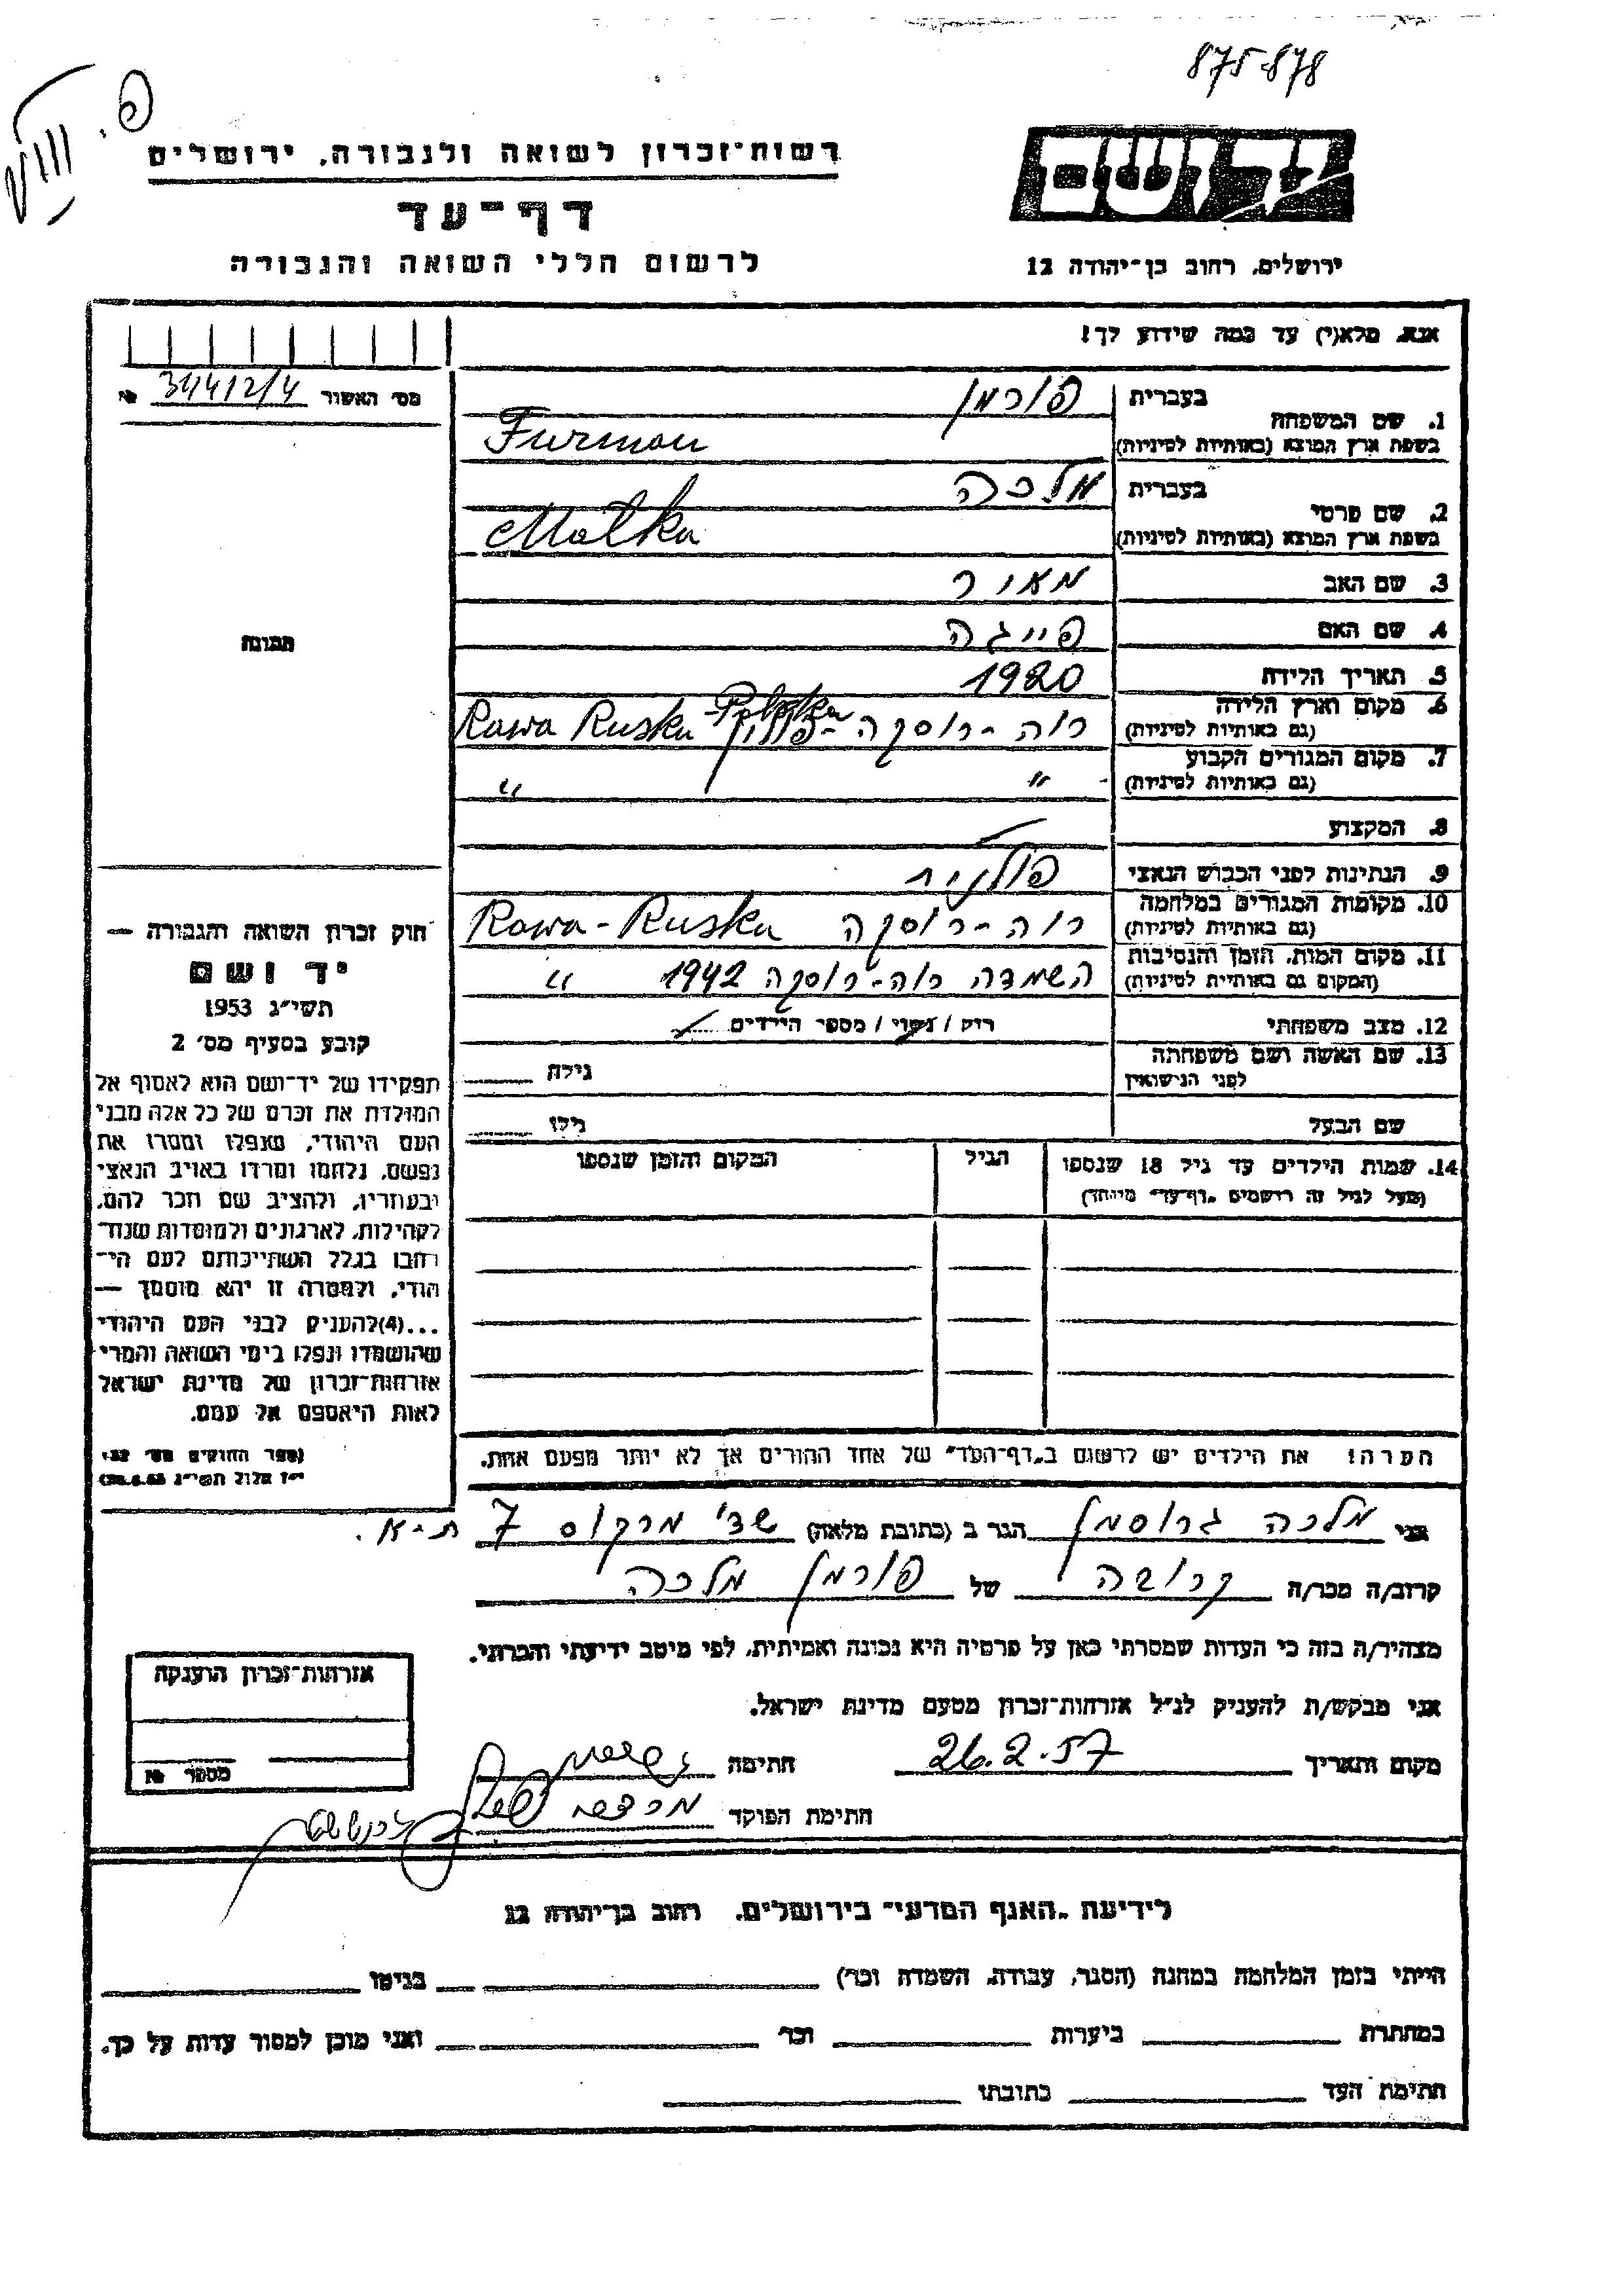 875-878
רשות־זכרון לשואה ולגבורה, ירושלים
דף־עד
לרשום חללי השואה והגבורה
יד ושם
ירושלים, רחוב בן־יהודה 12
אנא, מלא(י) עד כמה שידוע לך!
מס׳ האשור 31412/4 №
1. שם המשפחה
בעברית פורמן
בשפת ארץ המוצא (באותיות לטיניות) Furman
2. שם פרטי
בעברית מלכה
בשפת ארץ המוצא (באותיות לטיניות) Malka
3. שם האב מאיר
4. שם האם פייגה
5. תאריך הלידה 1920
6. מקום וארץ הלידה
(גם באותיות לטיניות) רוה-רוסקה-פולין Rawa Ruska-Polska
7. מקום המגורים הקבוע
(גם באותיות לטיניות) " "
8. המקצוע —
9. הנתינות לפני הכבוש הנאצי פולנית
10. מקומות המגורים במלחמה
(גם באותיות לטיניות) רוה-רוסקה Rawa-Ruska
11. מקום המות, הזמן והנסיבות
(המקום גם באותיות לטיניות) השמדה רוה-רוסקה 1942 "
12. מצב משפחתי רוק / נשוי / מספר הילדים
13. שם האשה ושם משפחתה
לפני הנישואין
גילה
שם הבעל
גילו
14. שמות הילדים עד גיל 18 שנספו
(מעל לגיל זה רושמים "דף־עד" מיוחד)
הגיל
המקום והזמן שנספו
הערה! את הילדים יש לרשום ב„דף־העד" של אחד ההורים אך לא יותר מפעם אחת.
תמונה
חוק זכרון השואה והגבורה —
יד ושם
תשי״ג 1953
קובע בסעיף מס׳ 2
תפקידו של יד־ושם הוא לאסוף אל
המולדת את זכרם של כל אלה מבני
העם היהודי, שנפלו ומסרו את
נפשם, נלחמו ומרדו באויב הנאצי
ובעוזריו, ולהציב שם וזכר להם,
לקהילות, לארגונים ולמוסדות שנח־
רבו בגלל השתייכותם לעם הי־
הודי, ולמטרה זו יהא מוסמך —
...(4)להעניק לבני העם היהודי
שהושמדו ונפלו בימי השואה והמרי
אזרחות־זכרון של מדינת ישראל
לאות היאספם אל עמם.
(ספר החוקים מס׳ 132,
י״ז אלול תשי״ג 28.8.53)
אני מלכה גרוסמן הגר ב (כתובת מלאה) שד׳ מרקוס 7 ת-א.
קרוב/ה מכר/ה קרובה של פורמן מלכה
מצהיר/ה בזה כי העדות שמסרתי כאן על פרטיה היא נכונה ואמיתית, לפי מיטב ידיעתי והכרתי.
אני מבקש/ת להעניק לנ״ל אזרחות־זכרון מטעם מדינת ישראל.
מקום ותאריך 26.2.57 חתימה
חתימת הפוקד
אזרחות־זכרון הוענקה
מספר №
לידיעת „האגף המדעי" בירושלים, רחוב בן־יהודה 12
הייתי בזמן המלחמה במחנה (הסגר, עבודה, השמדה וכר) בגיטו
במחתרת ביערות וכר ואני מוכן למסור עדות על כך.
חתימת העד כתובתו